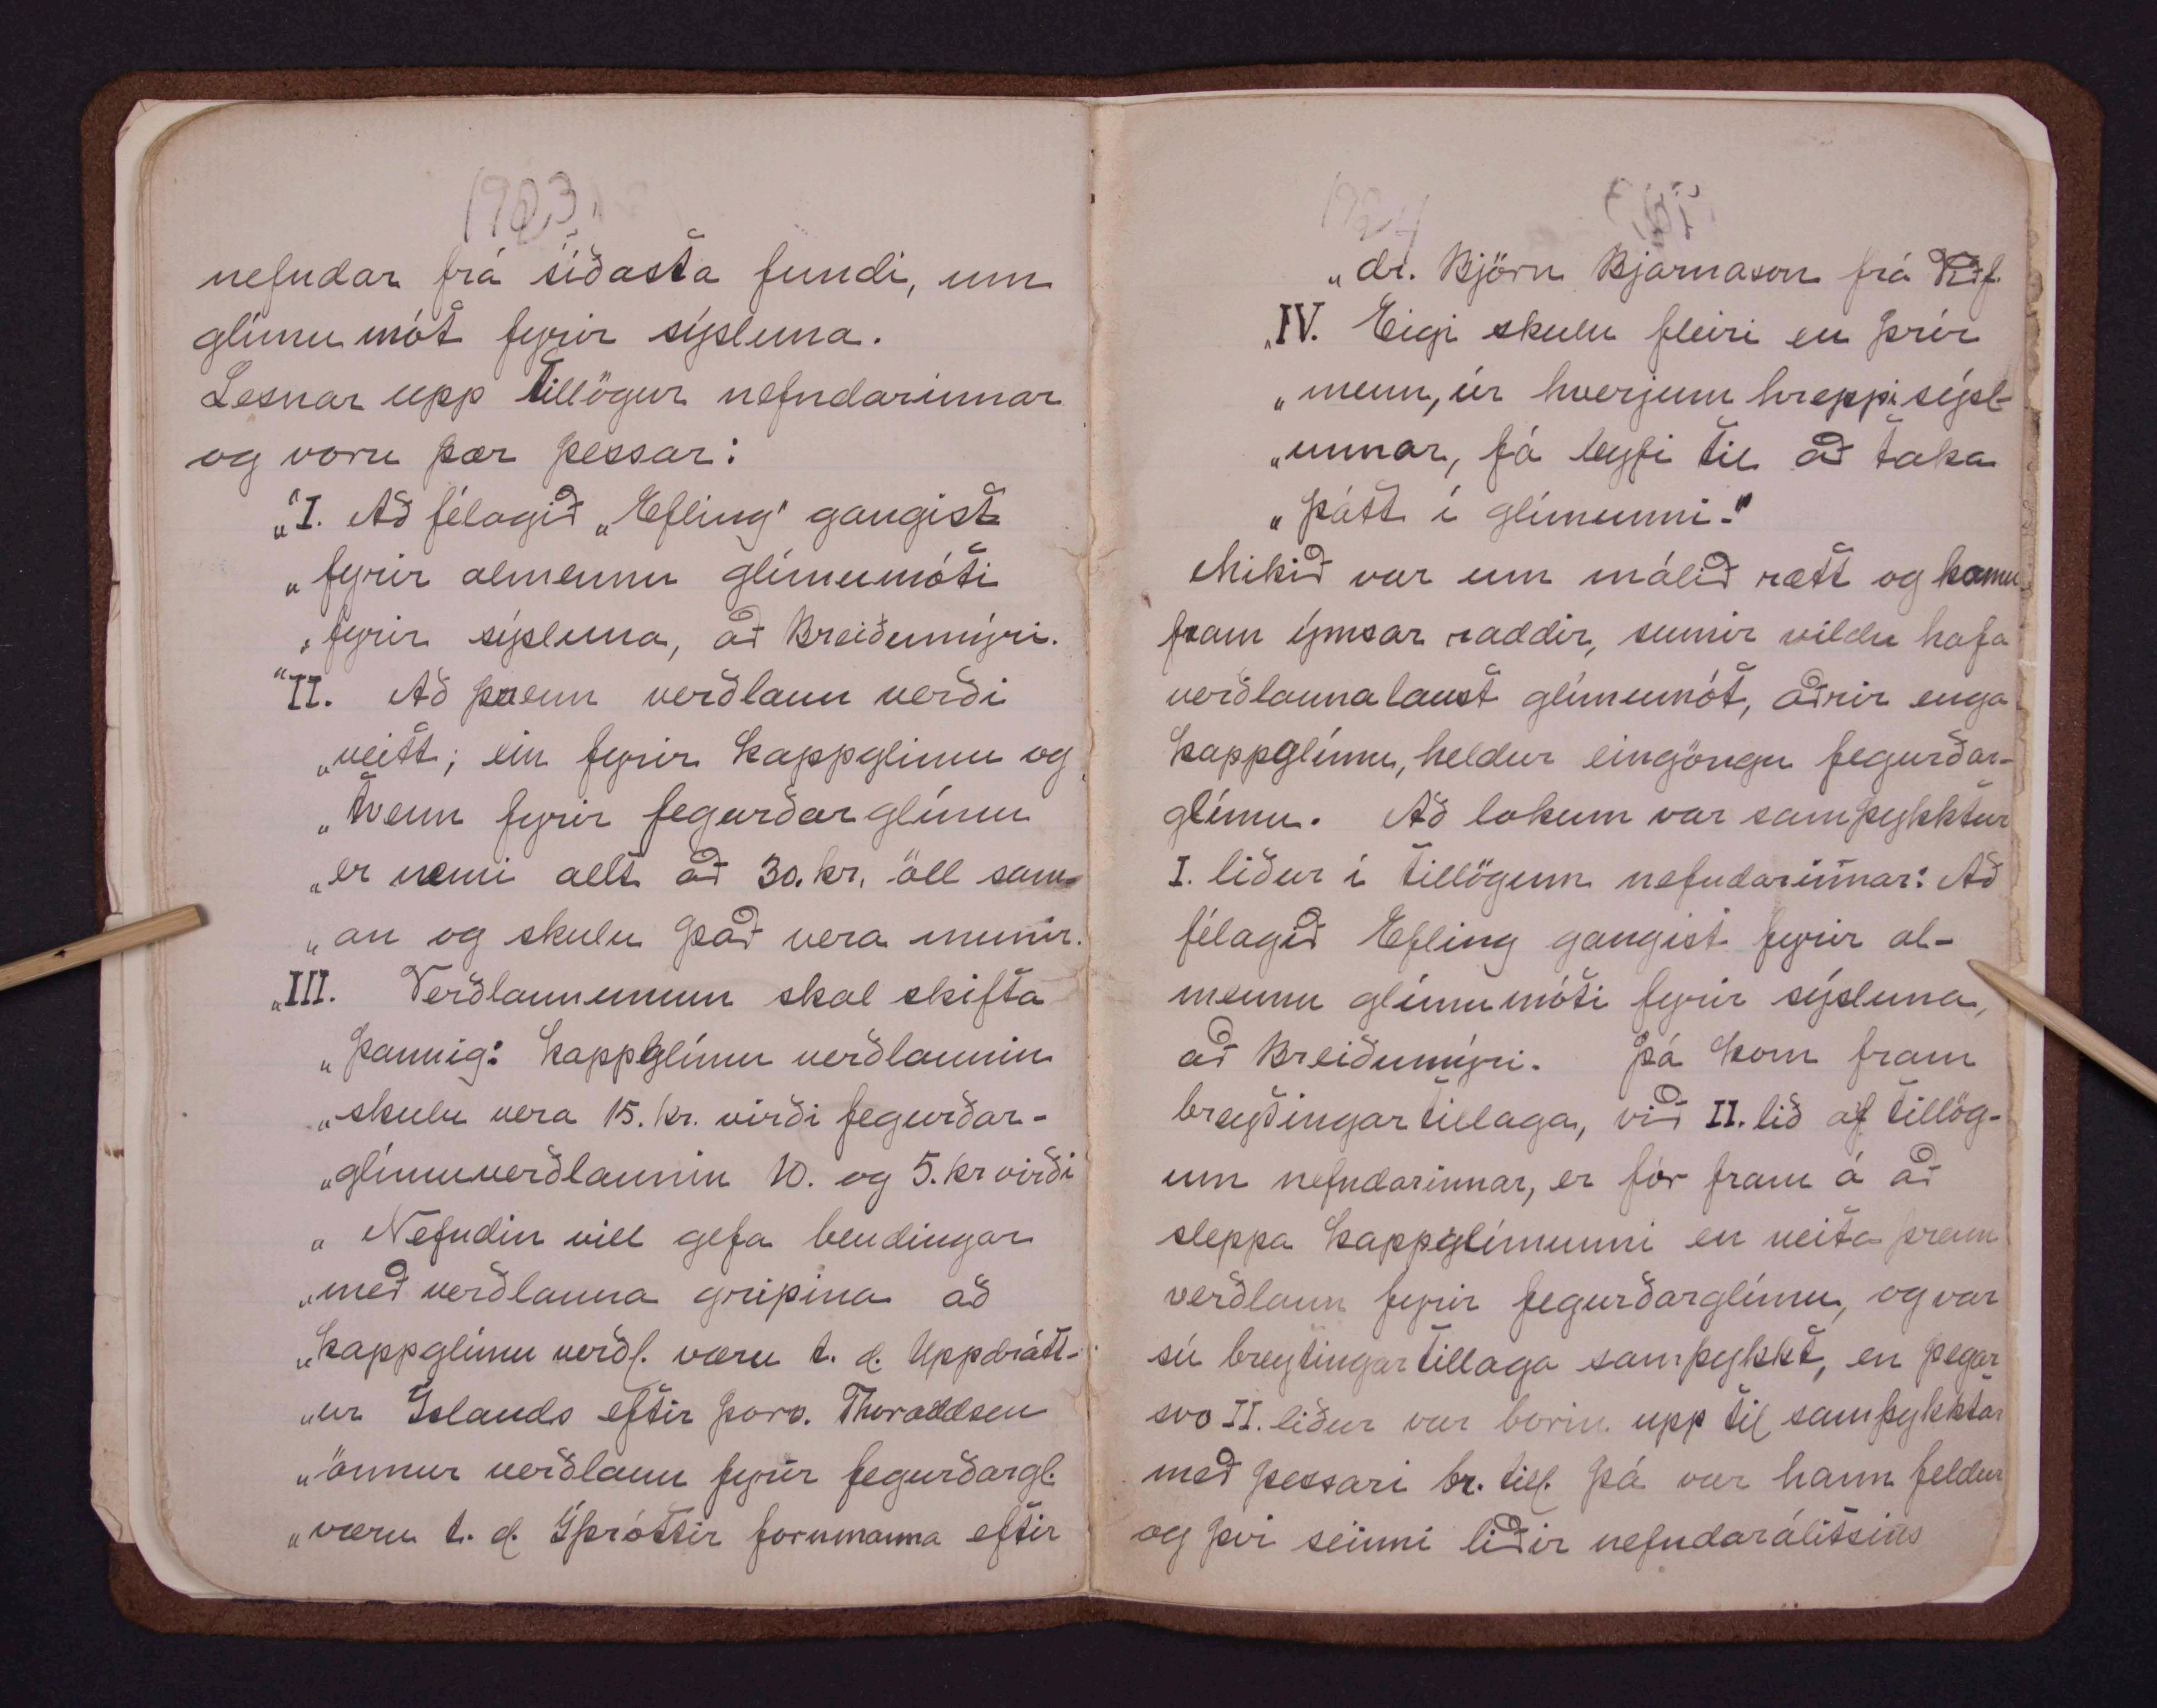 1923.
nefndar frá síðasta fundi, um
glímu mót fyrir sýsluna.
Lesnar upp tillögur nefndarinnar
og voru þær þessar:
„I. Að félagið „Efling" gangist
„fyrir almennu glímumóti
„fyrir sýsluna, að Breiðumýri.
"II. Að þrenn verðlaun verði
„veitt; ein fyrir kappglímu og
„tvenn fyrir fegurðarglímu
„er nemi allt að 30. kr. öll sam-
„an og skulu það vera munir.
„III. Verðlaununum skal skifta
„þannig: kappglímu verðlaunin
„skulu vera 15. kr. virði fegurðar-
„glímuverðlaunin 10. og 5. kr virði
„Nefndin vill gefa bendingar
„með verðlauna gripina að
„kappglímu verðl. væru t. d. Uppdrátt-
„ur Íslands eftir Þorv. Thoroddsen
„önnur verðlaun fyrir fegurðargl.
„væru t. d. Íþróttir fornmanna eftir
1924
„dr. Björn Bjarnason frá Viðf.
„IV. Eigi skulu fleiri en þrír
„menn, úr hverjum hreppi sýsl-
„unnar, fá leyfi til að taka
„þátt í glímunni."
Mikið var um málið rætt og komu
fram ýmsar raddir, sumir vildu hafa
verðlaunalaust glímumót, aðrir enga
kappglímu, heldur eingöngu fegurðar-
glímu. Að lokum var samþykktur
I. liður í tillögum nefndarinnar: Að
félagið Efling gangist fyrir al-
mennu glímumóti fyrir sýsluna,
að Breiðumýri. Þá kom fram
breytingartillaga, við II. lið af tillög-
um nefndarinnar, er fór fram á að
sleppa kappglímunni en veita þrenn
verðlaun fyrir fegurðarglímu, og var
sú breytingartillaga samþykkt, en þegar
svo II. liður var borin upp til samþykktar
með þessari br. till. þá var hann feldur
og því seinni liðir nefndarálitsins